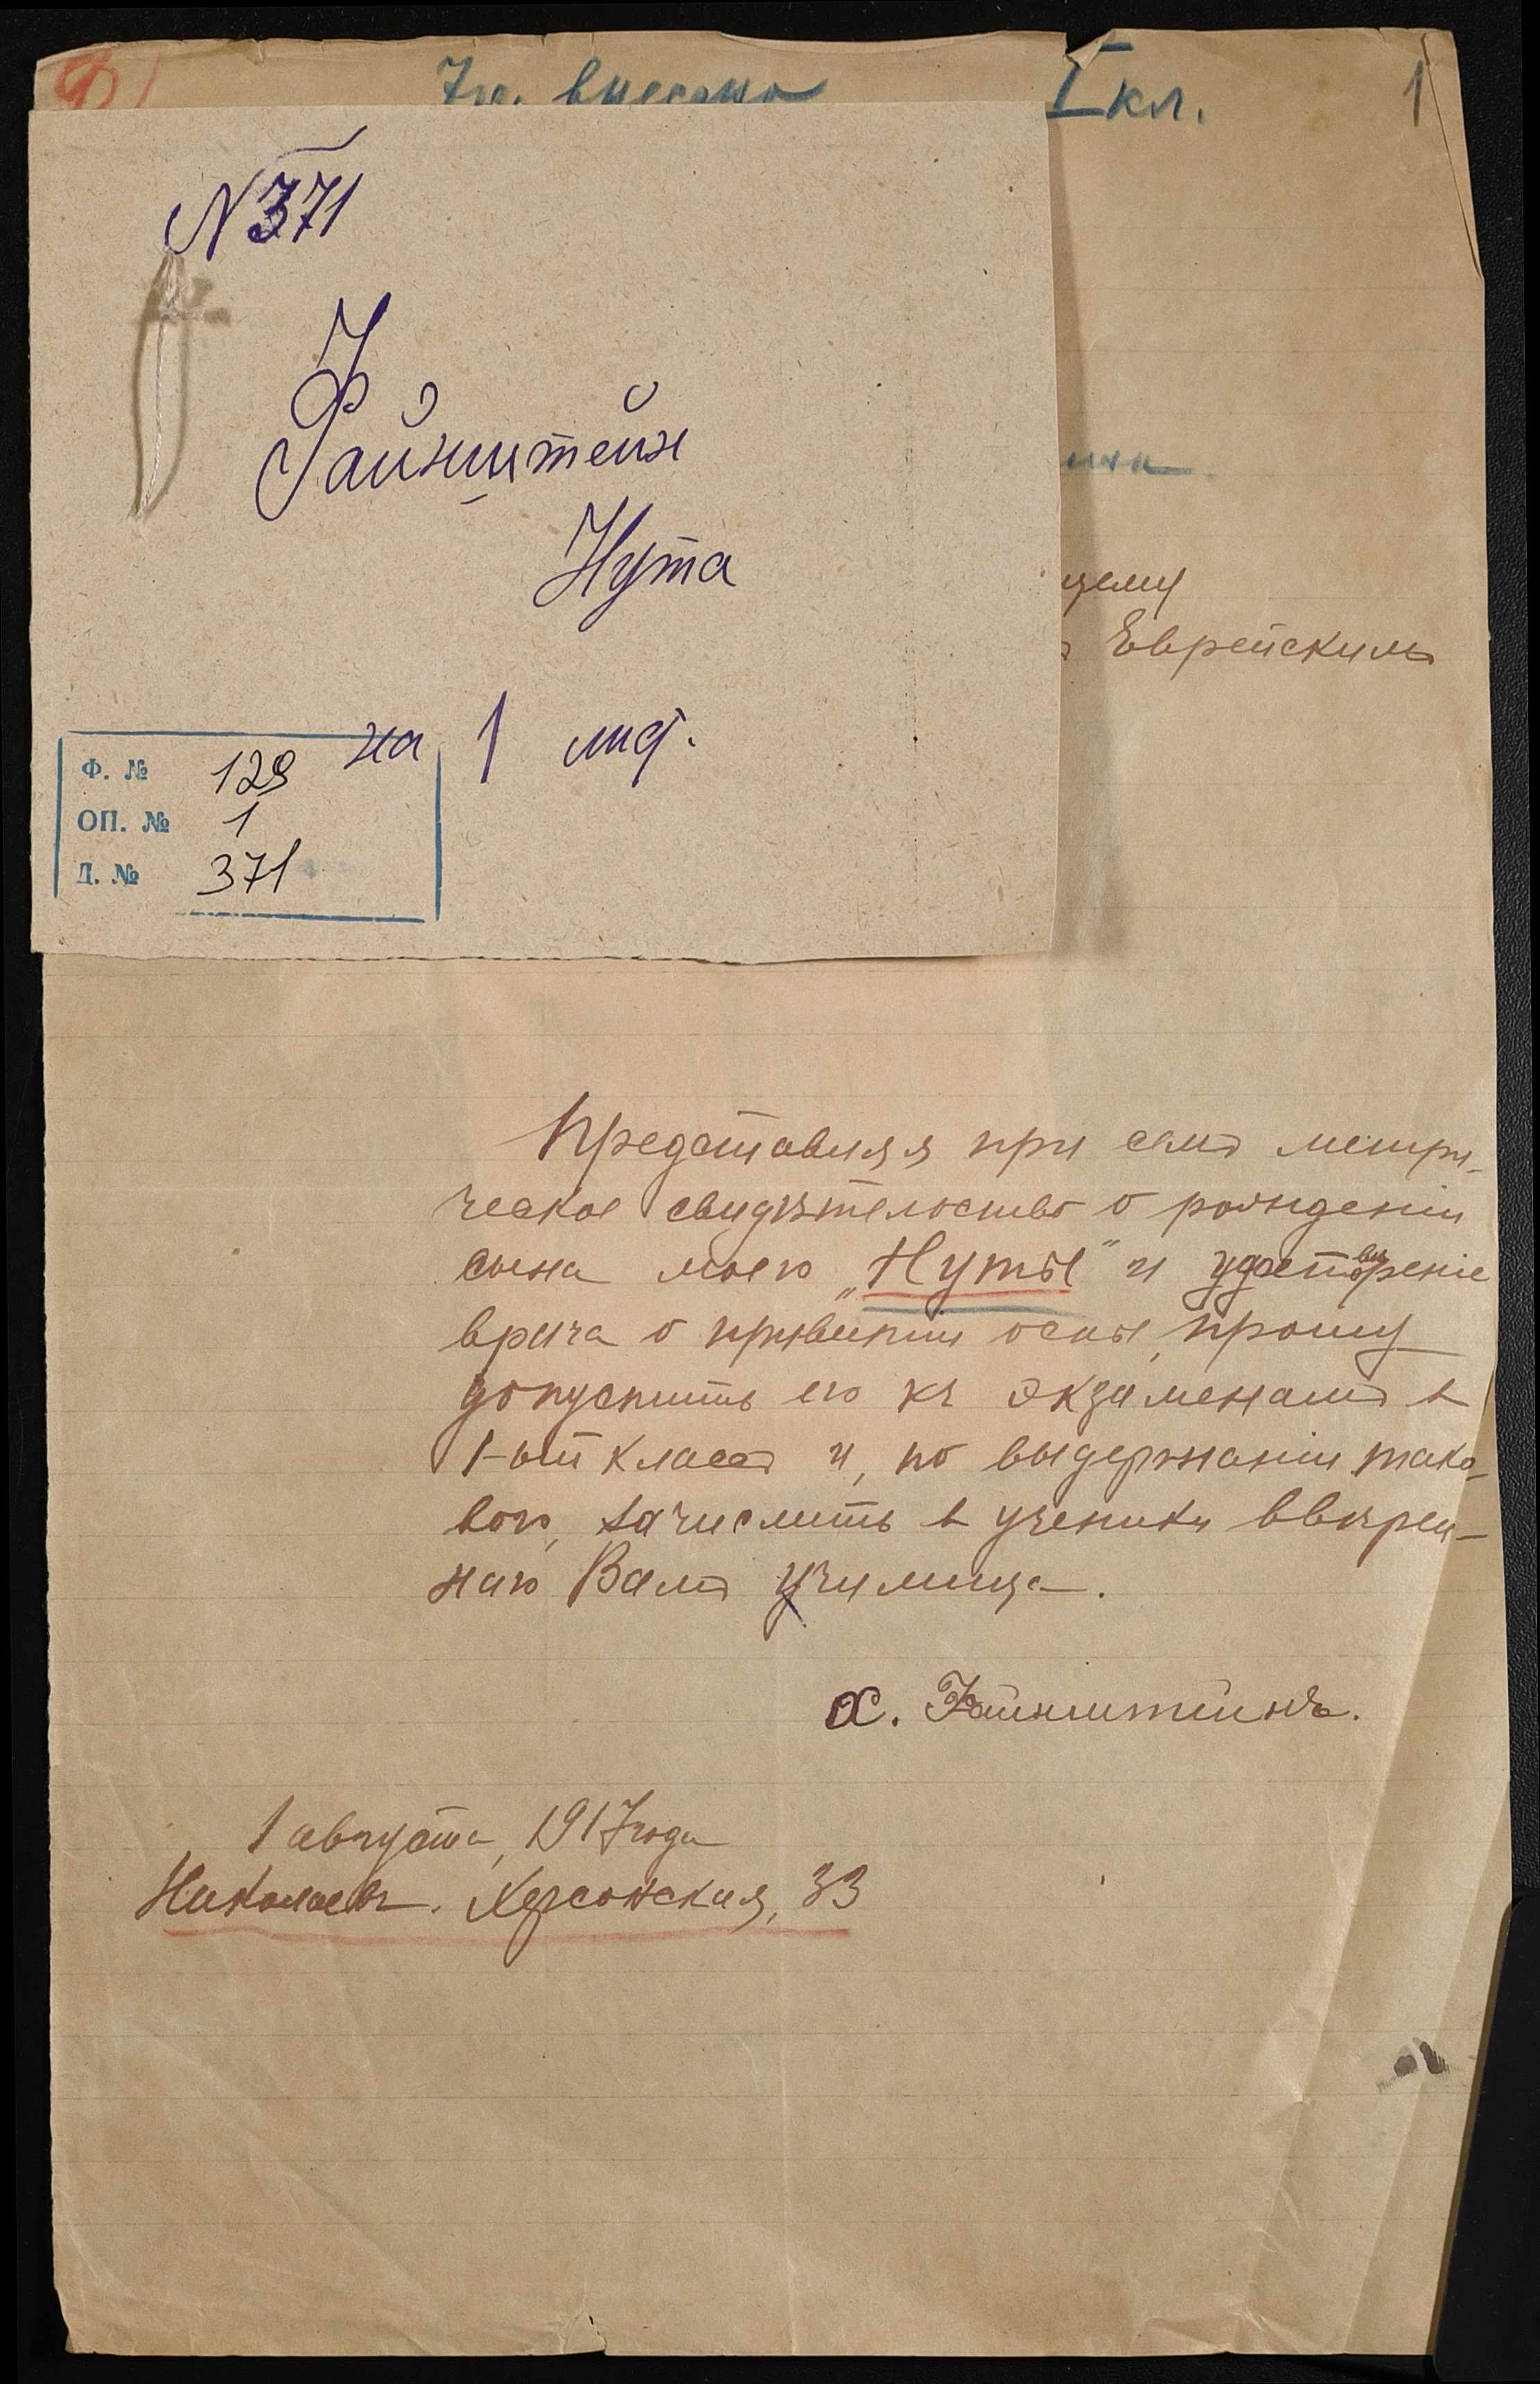 внесено I кл. 1
N 371
Файнштейн
Нута
на 1 лист.
Ф. № 129
ОП. № 1
Д. № 371
Еврейскимъ
Представляя при семъ метри-
ческое свидѣтельство о рожденіи
сына моего „Нуты" и удостовѣреніе
врача о привитіи оспы, прошу
допустить его къ экзаменамъ в
1-ый классъ и, по выдержаніи тако-
вого, зачислить в ученики ввѣрен-
наго Вамъ училища.
Х. Файнштейнъ.
1 августа, 1917 года
Николаевъ. Херсонская, 33